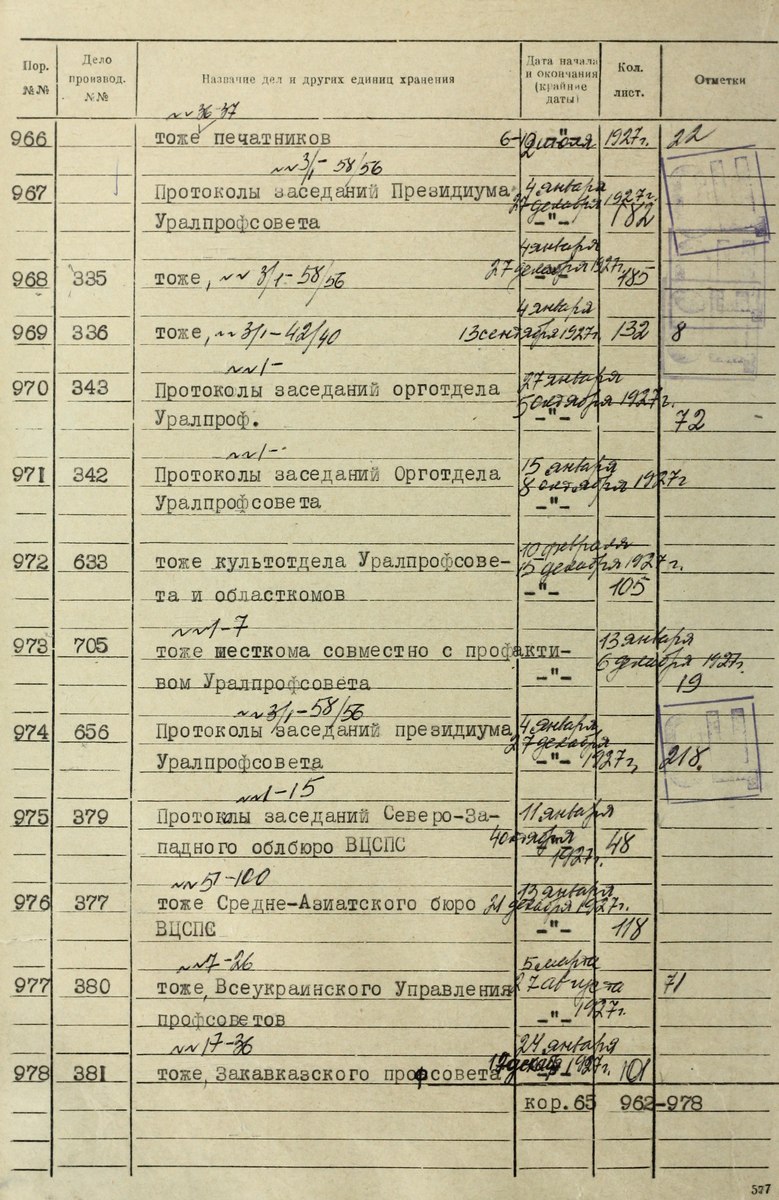 Пор. №№ Дело производ. №№ Название дел и других единиц хранения Дата начала и окончания (крайние даты) Кол. лист. Отметки
№№ 36-37
966 тоже печатников 6- июля 1927г. 22
№№ 3/1- 58/56
967 Протоколы заседаний Президиума 4 января 27 декабря 1927г.
Уралпрофсовета -"- 182
4 января
968 335 тоже, №№ 3/1- 58/56 27 декабря 1927г. 185
4 января
969 336 тоже, №№ 3/1- 42/40 13 сентября 1927г. 132 8
№№ 1-
970 343 Протоколы заседаний орготдела 27 января 5 октября 1927г.
Уралпроф. -"- 72
№№ 1-
971 342 Протоколы заседаний Орготдела 15 января 8 октября 1927г
Уралпрофсовета -"-
10 февраля
972 633 тоже культотдела Уралпрофсове- 15 декабря 1927г.
та и областкомов -"- 105
№№ 1-7
973 705 тоже шесткома совместно с профакти- 13 января 6 декабря 1927г.
вом Уралпрофсовета -"- 19
№№ 3/1-58/56
974 656 Протоколы заседаний президиума 4 января 27 декабря
Уралпрофсовета -"- 1927г, 218.
№№ 1-15
975 379 Протоклы заседаний Северо-За- 11 января
падного облбюро ВЦСПС 4 октября 1927г. 48
№№ 51-100
976 377 тоже Средне-Азиатского бюро 13 января 21 декабря 1927г.
ВЦСПС -"- 118
№№ 7-26
977 380 тоже, Всеукраинского Управления 5 марта 27 августа 71
профсоветов -"- 1927г.
№№ 17-36
978 381 тоже, Закавказского профсовета 24 января декабр 1927г. 101
кор. 65 962-978
577